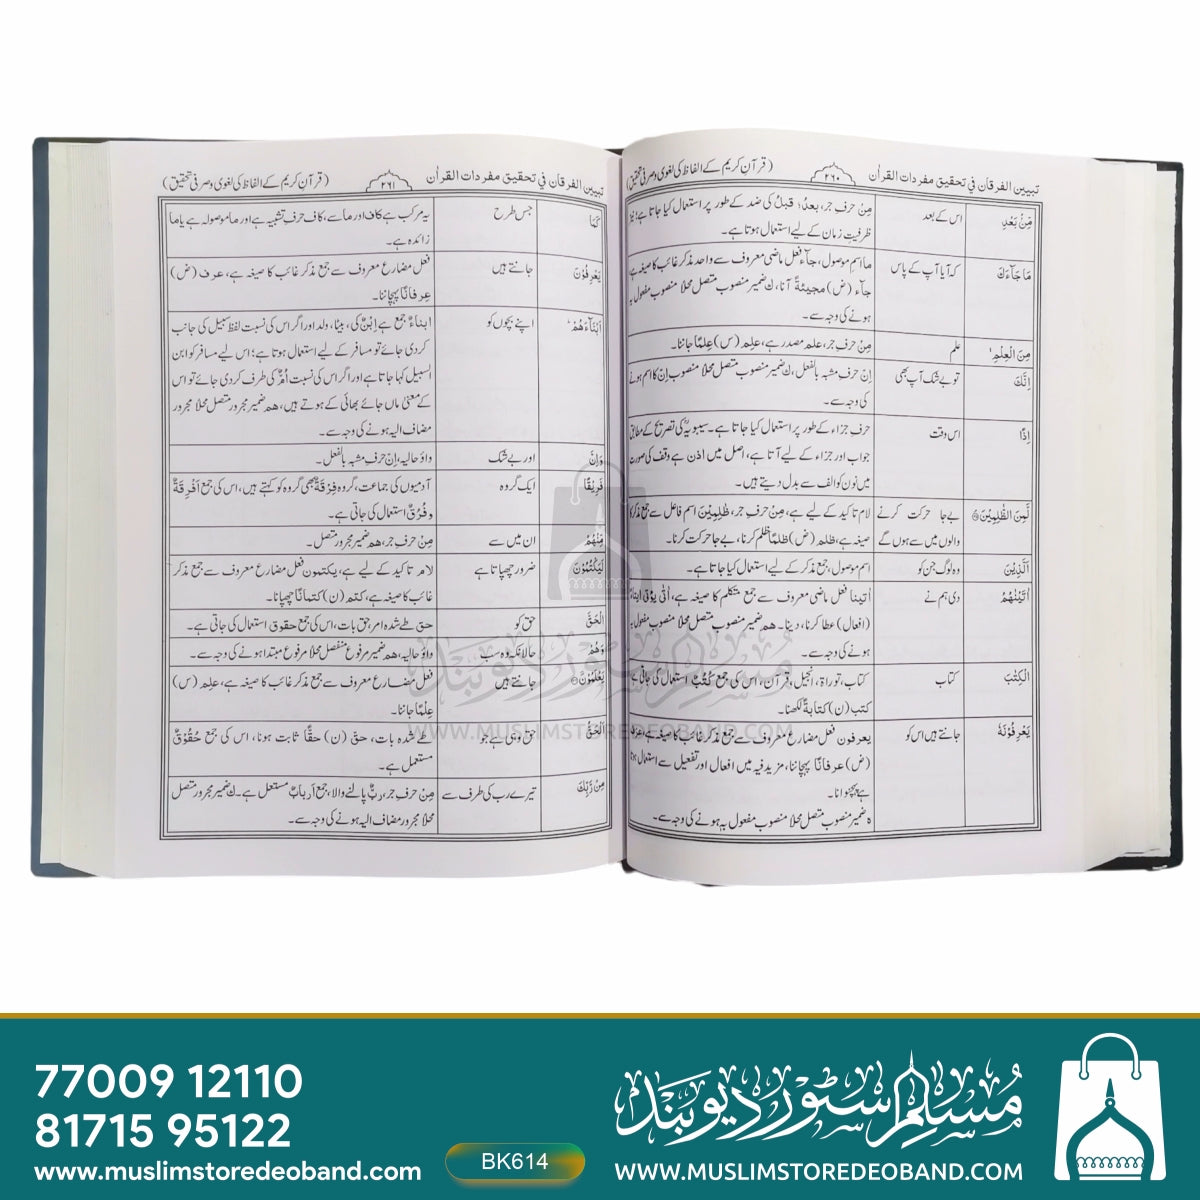 تبیین الفرقان فی تحقیق مفردات القرآن ۲۶۰ (قرآن کریم کے الفاظ کی لغوی و صرفی تحقیق)
مِنْۢ بَعْدِ اس کے بعد مِنْ حرف جر، بعدُ؛ قبلُ کی ضد کے طور پر استعمال کیا جاتا ہے؛ نیز
ظرفیت زمان کے لیے استعمال ہوتا ہے۔
مَا جَآءَكَ کہ آیا آپ کے پاس ما اسم موصول، جآء فعل ماضی معروف سے واحد مذکر غائب کا صیغہ ہے
جآء (ض) مجیئةً آنا، ك ضمیر منصوب متصل محلا منصوب مفعول بہ
ہونے کی وجہ سے۔
مِنَ الْعِلْمِ علم مِنْ حرف جر، علم مصدر ہے، علِم (س) عِلمًا جاننا۔
اِنَّكَ تو بے شک آپ بھی اِنّ حرف مشبہ بالفعل، ك ضمیر منصوب متصل محلا منصوب اِنّ کا اسم ہونے
کی وجہ سے۔
اِذًا اس وقت حرف جزاء کے طور پر استعمال کیا جاتا ہے۔ سیبویہ کی تصریح کے مطابق
جواب اور جزاء کے لیے آتا ہے، اصل میں اذن ہے وقف کی صورت
میں نون کو الف سے بدل دیتے ہیں۔
لَّمِنَ الظّٰلِمِيْنَ بے جا حرکت کرنے لام تاکید کے لیے ہے، مِنْ حرف جر، ظٰلِمِیْنَ اسم فاعل سے جمع مذکر کا
والوں میں سے ہوں گے صیغہ ہے، ظلم (ض) ظلمًا ظلم کرنا، بے جا حرکت کرنا۔
اَلَّذِيْنَ وہ لوگ جن کو اسم موصول، جمع مذکر کے لیے استعمال کیا جاتا ہے۔
اٰتَيْنٰهُمُ دی ہم نے اٰتینا فعل ماضی معروف سے جمع متکلم کا صیغہ ہے، اٰتٰی یؤتی ایتاءً
(افعال) عطا کرنا، دینا۔ هم ضمیر منصوب متصل محلا منصوب مفعول بہ
ہونے کی وجہ سے۔
الْكِتٰبَ کتاب کتاب، توراة، انجیل، قرآن، اس کی جمع كُتُبٌ استعمال کی جاتی ہے
كتب (ن) كتابةً لکھنا۔
يَعْرِفُوْنَهٗ جانتے ہیں اس کو يعرفون فعل مضارع معروف سے جمع مذکر غائب کا صیغہ ہے، عرف
(ض) عرفانًا پہچاننا، مزید فیہ میں افعال اور تفعیل سے استعمال ہوتا
ہے پہچنوانا۔
ہ ضمیر منصوب متصل محلا منصوب مفعول بہ ہونے کی وجہ سے۔
تبیین الفرقان فی تحقیق مفردات القرآن ۲۶۱ (قرآن کریم کے الفاظ کی لغوی و صرفی تحقیق)
كَمَا جس طرح یہ مرکب ہے کاف اور ما سے، کاف حرف تشبیہ ہے اور ما موصولہ ہے یا ما
زائدہ ہے۔
يَعْرِفُوْنَ جانتے ہیں فعل مضارع معروف سے جمع مذکر غائب کا صیغہ ہے، عرف (ض)
عِرفانًا پہچاننا۔
اَبْنَآءَهُمْ اپنے بچوں کو ابناءٌ جمع ہے اِبْنٌ کی، بیٹا، ولد اور اگر اس کی نسبت لفظ سبیل کی جانب
کر دی جائے تو مسافر کے لیے استعمال ہوتا ہے؛ اس لیے مسافر کو ابن
السبیل کہا جاتا ہے اور اگر اس کی نسبت اُمّ کی طرف کر دی جائے تو اس
کے معنی ماں جائے بھائی کے ہوتے ہیں، هم ضمیر مجرور متصل محلا مجرور
مضاف الیہ ہونے کی وجہ سے۔
وَاِنَّ اور بے شک واؤ حالیہ، اِنّ حرف مشبہ بالفعل۔
فَرِيْقًا ایک گروہ آدمیوں کی جماعت، گروہ فِرْقَةٌ بھی گروہ کو کہتے ہیں، اس کی جمع اَفْرِقَةٌ
و فُرُقٌ استعمال کی جاتی ہے۔
مِّنْهُمْ ان میں سے مِنْ حرف جر، هم ضمیر مجرور متصل۔
لَيَكْتُمُوْنَ ضرور چھپاتا ہے لام تاکید کے لیے ہے، یکتمون فعل مضارع معروف سے جمع مذکر
غائب کا صیغہ ہے، کتم (ن) کتمانًا چھپانا۔
الْحَقَّ حق کو حق طے شدہ امر، حق بات، اس کی جمع حقوق استعمال کی جاتی ہے۔
وَهُمْ حالانکہ وہ سب واؤ حالیہ، هم ضمیر مرفوع منفصل محلا مرفوع مبتدا ہونے کی وجہ سے۔
يَعْلَمُوْنَ جانتے ہیں فعل مضارع معروف سے جمع مذکر غائب کا صیغہ ہے، علِم (س)
عِلمًا جاننا۔
اَلْحَقُّ حق وہی ہے جو طے شدہ بات، حق (ن) حقًّا ثابت ہونا، اس کی جمع حُقُوْقٌ
مستعمل ہے۔
مِنْ رَّبِّكَ تیرے رب کی طرف سے مِنْ حرف جر، ربٌّ پالنے والا، جمع اَربابٌ مستعمل ہے۔ ك ضمیر مجرور متصل
محلا مجرور مضاف الیہ ہونے کی وجہ سے۔
مسلم سٹور دیوبند
WWW.MUSLIMSTOREDEOBAND.COM
77009 12110
81715 95122
www.muslimstoredeoband.com
BK614
مسلم سٹور دیوبند
WWW.MUSLIMSTOREDEOBAND.COM